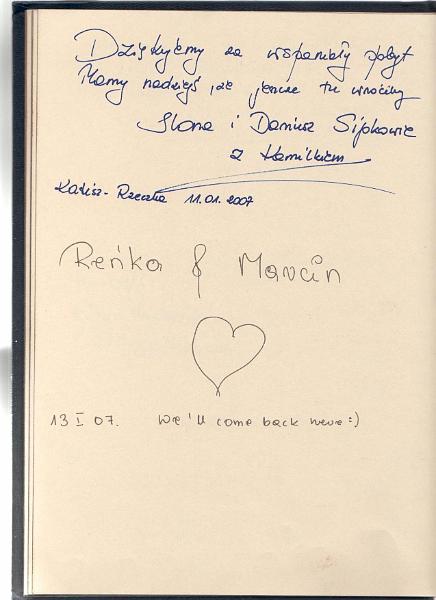 Dziękujemy za wspaniały pobyt
Mamy nadzieję, że jeszcze tu wrócimy
Ilona i Dariusz Sipkowie
z Kamilkiem
Rzeczka 11.01.2007
Reńka & Marcin
13 I 07. We'll come back here :)